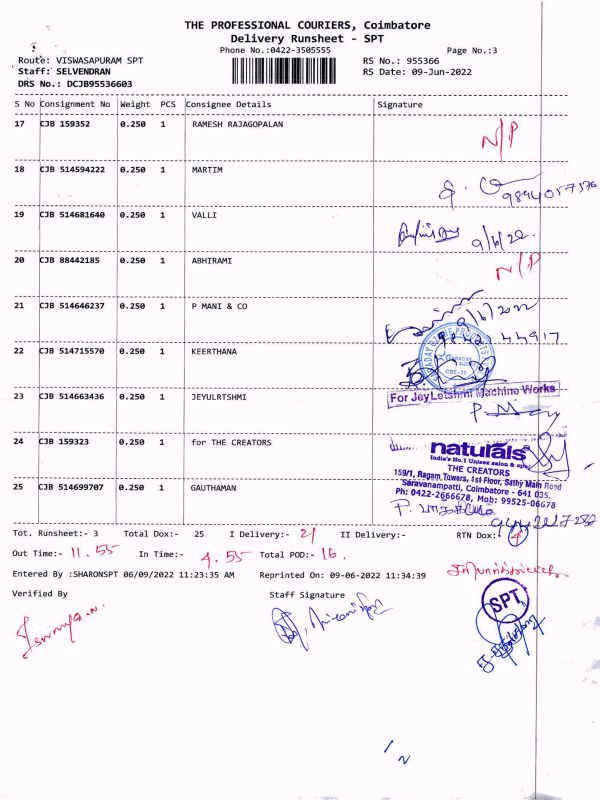 THE PROFESSIONAL COURIERS, Coimbatore
Delivery Runsheet - SPT
Phone No.:0422-3505555 Page No.:3
Route: VISWASAPURAM SPT RS No.: 955366
Staff: SELVENDRAN RS Date: 09-Jun-2022
DRS No.: DCJB95536603
S No Consignment No Weight PCS Consignee Details Signature
17 CJB 159352 0.250 1 RAMESH RAJAGOPALAN N/P
18 CJB 514594222 0.250 1 MARTIM
19 CJB 514681640 0.250 1 VALLI 9/6/22.
20 CJB 88442185 0.250 1 ABHIRAMI N/P
21 CJB 514646237 0.250 1 P MANI & CO 9/6/2022
22 CJB 514715570 0.250 1 KEERTHANA
CBE-35
23 CJB 514663436 0.250 1 JEYULRTSHMI For JeyLetshmi Machine Works
24 CJB 159323 0.250 1 for THE CREATORS naturals
India's No.1 Unisex salon & spa
THE CREATORS
159/1, Ragam Towers, 1st Floor, Sathy Main Road
Saravanampatti, Coimbatore - 641 035.
25 CJB 514699707 0.250 1 GAUTHAMAN Ph: 0422-2666678, Mob: 99525-06678
Tot. Runsheet:- 3 Total Dox:- 25 I Delivery:- 21 II Delivery:- RTN Dox:- 4
Out Time:- 11.55 In Time:- 4.55 Total POD:- 16.
Entered By :SHARONSPT 06/09/2022 11:23:35 AM Reprinted On: 09-06-2022 11:34:39
Verified By Staff Signature
SPT